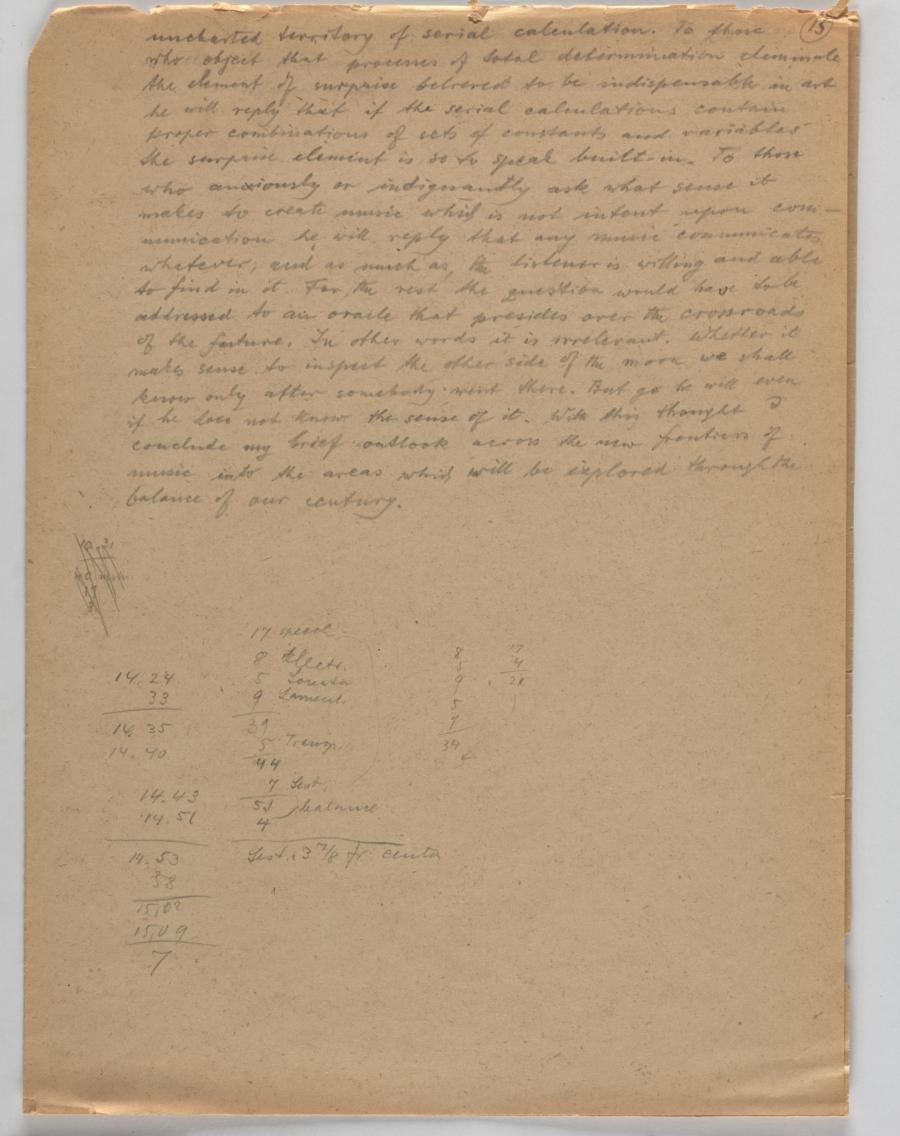 15
uncharted territory of serial calculation. To those
who object that processes of total determination eliminate
the element of surprise believed to be indispensable in art
he will reply that if the serial calculations contain
proper combinations of sets of constants and variables
the surprise element is so to speak built-in. To those
who anxiously or indignantly ask what sense it
makes to create music which is not intent upon com-
munication he will reply that any music communicates
whatever, and as much as, the listener is willing and able
to find in it. For the rest the question would have to be
addressed to an oracle that presides over the crossroads
of the future. In other words it is irrelevant. Whether it
makes sense to inspect the other side of the moon we shall
know only after somebody went there. But go he will even
if he does not know the sense of it. With this thought I
conclude my brief outlook across the new frontiers of
music into the areas which will be explored through the
balance of our century.
17
8 Electr.
5
9 Lament.
39
5 Transp.
44
7 Sest.
51 balance
4
Sest. 3 7/8 fr. center
14.24
33
14.35
14.40
14.43
14.51
14.53
58
15,02
15,09
7
8
5
9
5
7
34
17
4
21